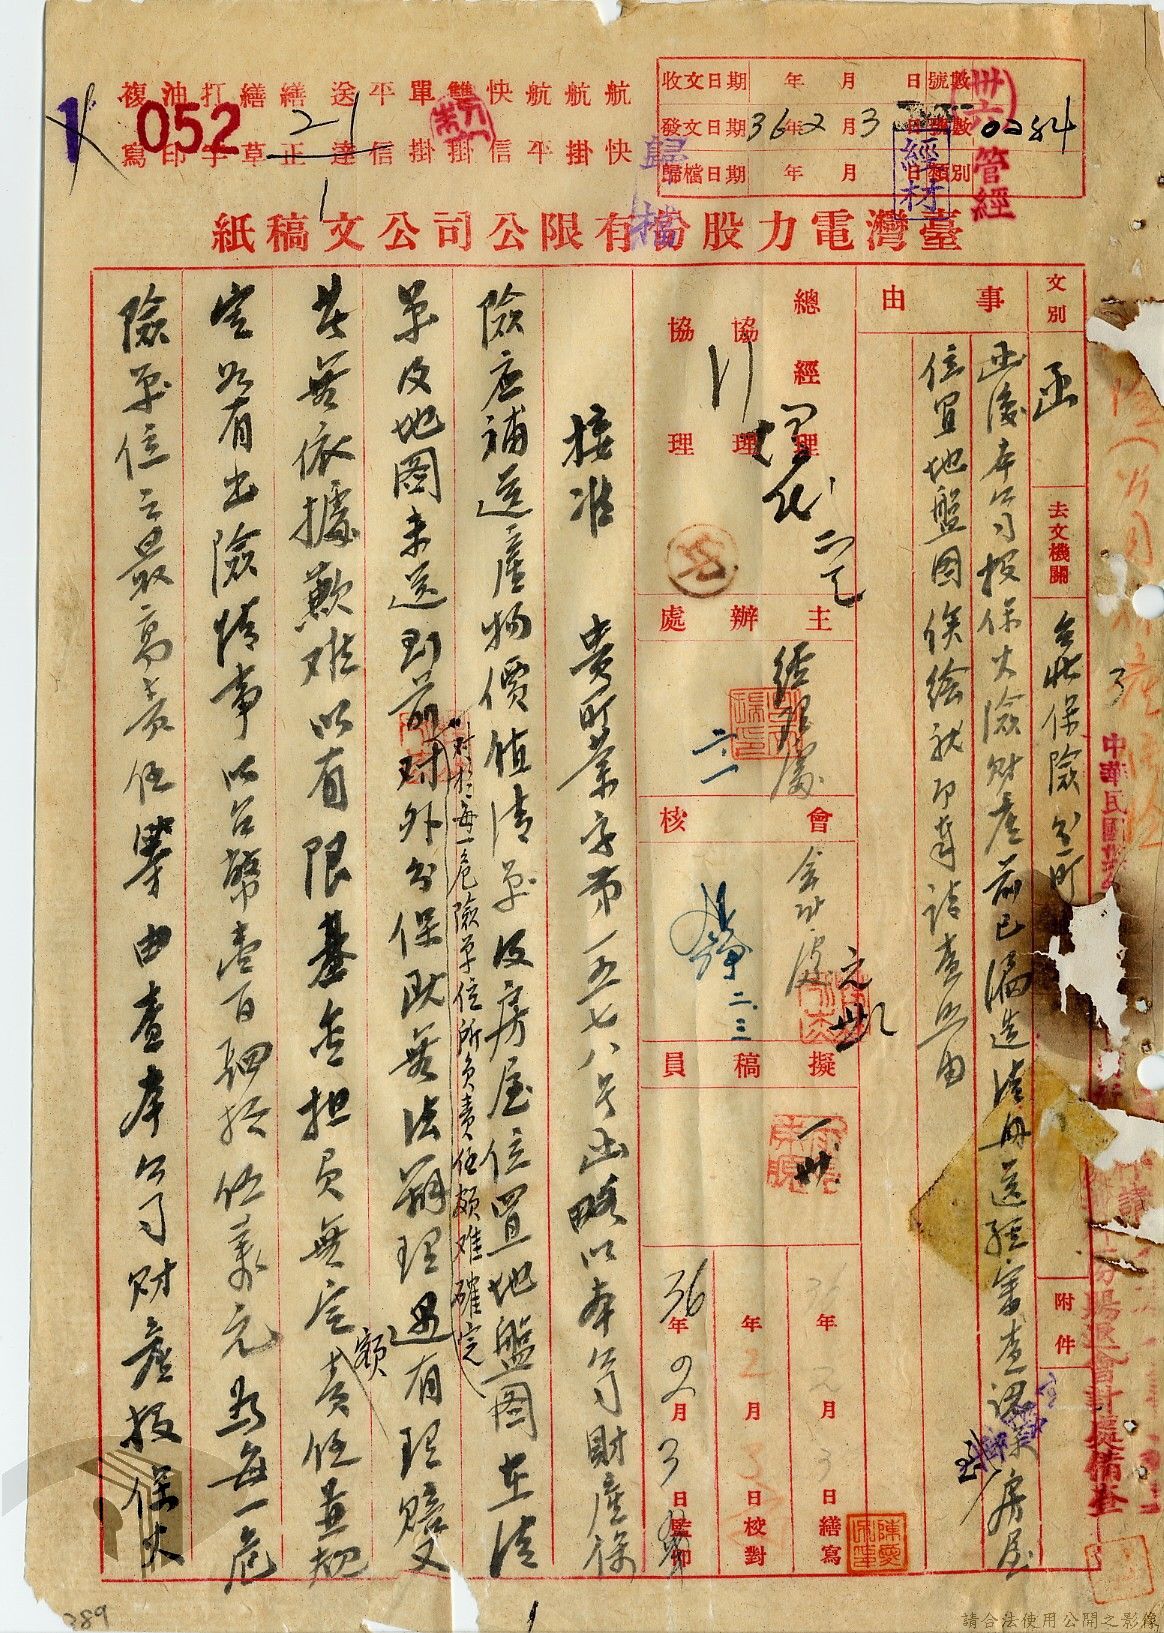 航航航快雙單平送繕繕打油複
快掛平信掛掛信達正草字印寫
052
21
1
收文日期 年 月 日 號數
發文日期 36年2月3日 號數 0284
歸檔日期 年 月 日 類別
卅六 管經
經材
歸檔
臺灣電力股份有限公司公文稿紙
文別 函
去文機關 台北保險分所
附件
事由
函復本公司投保火險財產前已編造清冊送經審查認案房屋
位置地盤圖俟繪就即寄請查照由
總經理
協理
協理
主辦處 經理處
會核 會計處
擬稿員
年 月 3日繕寫
年2月3日校對
36年2月3日監印
接准 貴所業字第一五七八号函略以本公司財產保
險應補送產物價值清單及房屋位置地盤圖在清
單及地圖未送到前對外分保既無法辦理遇有理賠又
對於每一危險單位所負責任頗難確定
甚無依據歉难以有限基金担負無定額責任並規
定如有出險情事以台幣壹百肆拾伍萬元為每一危
險單位之最高責任等由查本公司財產投保火
289
請合法使用公開之影像